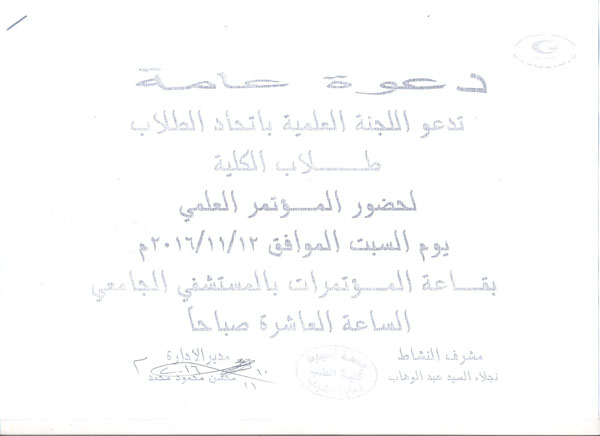 دعوة عامة
تدعو اللجنة العلمية باتحاد الطلاب
طلاب الكلية
لحضور المؤتمر العلمي
يوم السبت الموافق ٢٠١٦/١١/١٢م
بقاعة المؤتمرات بالمستشفي الجامعي
الساعة العاشرة صباحاً
مشرف النشاط
مدير الادارة
نجلاء السيد عبد الوهاب
محمود محمد